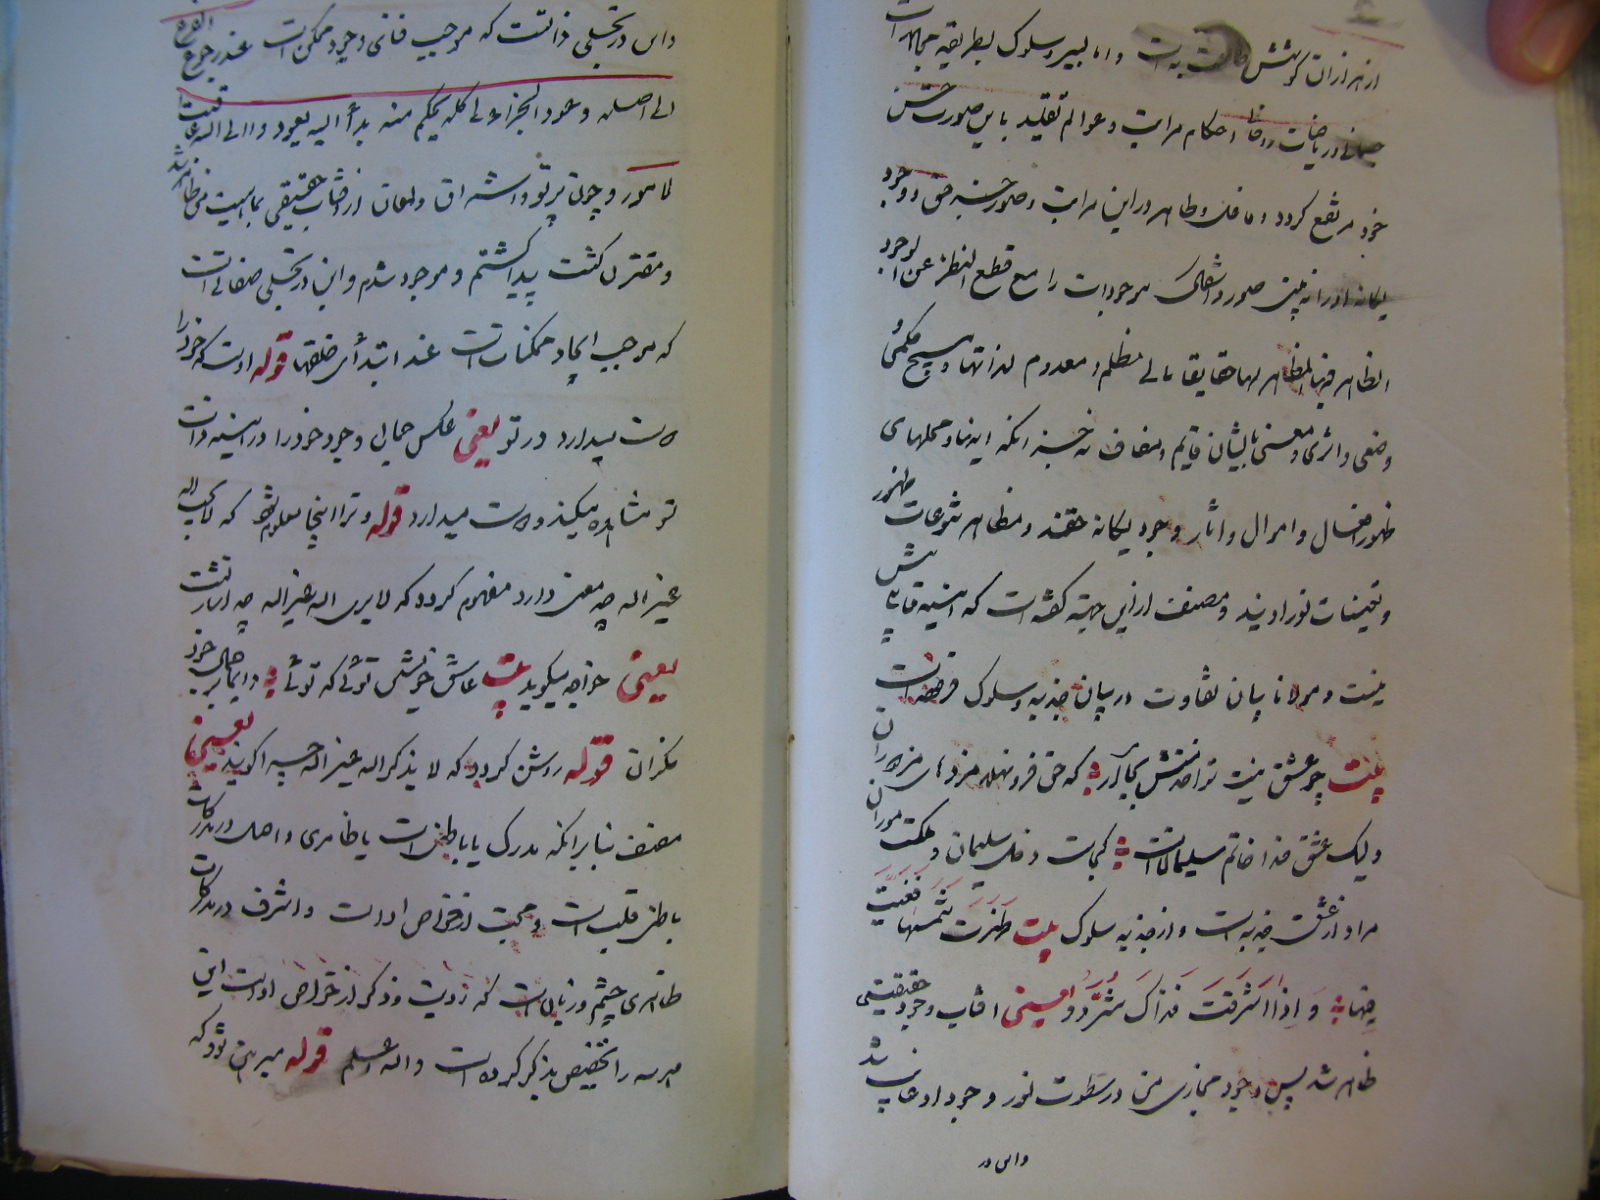 از هزاران کوشش است و اما بسیر و سلوک بطریقه مجاهدات
و ریاضات احکام مراتب و عوالم تقلید باین صورت
خود مرتفع کردد و ظاهر در این مراتب و صور حق و وجود
یکانه صور و اشکال موجودات را مع قطع النظر عن الوجود
الظاهر فیها المظاهر لها حقایقها مظلم و معدوم لذاتها و هیچ حکمی
وصفی و اثری و معنی بایشان قایم نه جز آنکه آینها و محلهای
ظهور افعال و احوال و آثار وجود یکانه حقند و مظاهر تنوعات ظهور
و تعینات نور اویند و مصنف از این جهة گفته است که
نیست و مولانا بیان تفاوت در بیان جذبه و سلوک فرموده است
بیت چو عشق نیست ترا بجا آر که حق فرو نهلد مزد
ولیک عشق خدا خاتم سلیمانست کجاست دخل سلیمان و مکسب موران
مراد از عشق جذبه است و از جذبه سلوک بیت ظهرت شمسها فغیبت
فیها و اذا اشرقت فذاک شروق یعنی آفتاب وجود حقیقی
ظاهر شد پس وجود مجازی من در سطوت نور وجود او غایب شد
و این در
و این در تجلی ذاتست که موجب فنای وجود ممکن است عند رجوع الفرع
الی اصله و عود الجزء الی کله بحکم منه بدأ الیه یعود و الی الله عاقبت
الامور و چون پرتو و اشراق و لمعان آفتاب حقیقی بماهیت من ظاهر شد
و مقترن کشت پیدا کشتم و موجود شدم و این در تجلی صفاتی است
که موجب ایجاد ممکنات است عند ابتداء خلقها قوله اوست که خود را
دوست میدارد در تو یعنی عکس جمال وجود خود را در آینه ذات
تو مشاهده میکند و دوست میدارد قوله و ترا اینجا معلوم شود که لا یحب الله
غیر الله چه معنی دارد مفهوم کردد که لا یری الله غیر الله چه اشارتست
یعنی خواجه میکوید بیت عاشق خویشی توئی که توئی دائما بر جمال خود
نکران قوله روشن کردد که لا یذکر الله غیر الله چرا کویند یعنی
مصنف بنابر آنکه مدرک یا باطنی است یا ظاهری و اصل در مدرکات
باطنی قلب است و محبت از خواص اوست و اشرف در مدرکات
ظاهری چشم و زبانست که رؤیت و ذکر از خواص اوست این
هر سه را تخصیص بذکر کرده است و الله اعلم قوله مبرهن شود که